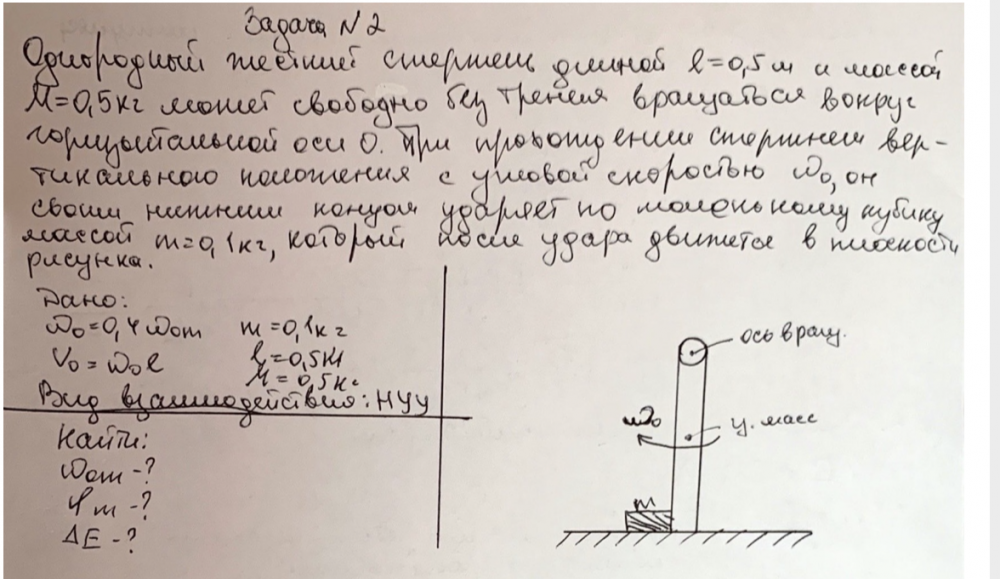 Задача N2
Однородный жесткий стержень длиной l=0,5м и массой
M=0,5кг может свободно без трения вращаться вокруг
горизонтальной оси O. При прохождении стержнем вер-
тикального положения с угловой скоростью ω₀, он
своим нижним концом ударяет по маленькому кубику
массой m=0,1кг, который после удара движется в плоскости
рисунка.
Дано:
ω₀=0,4ωom m=0,1кг
V₀=ω₀l l=0,5м
M=0,5кг
Вид взаимодействия: НУУ
Найти:
ωom-?
φm-?
ΔE-?
ось вращ.
ω₀
ц. масс
m